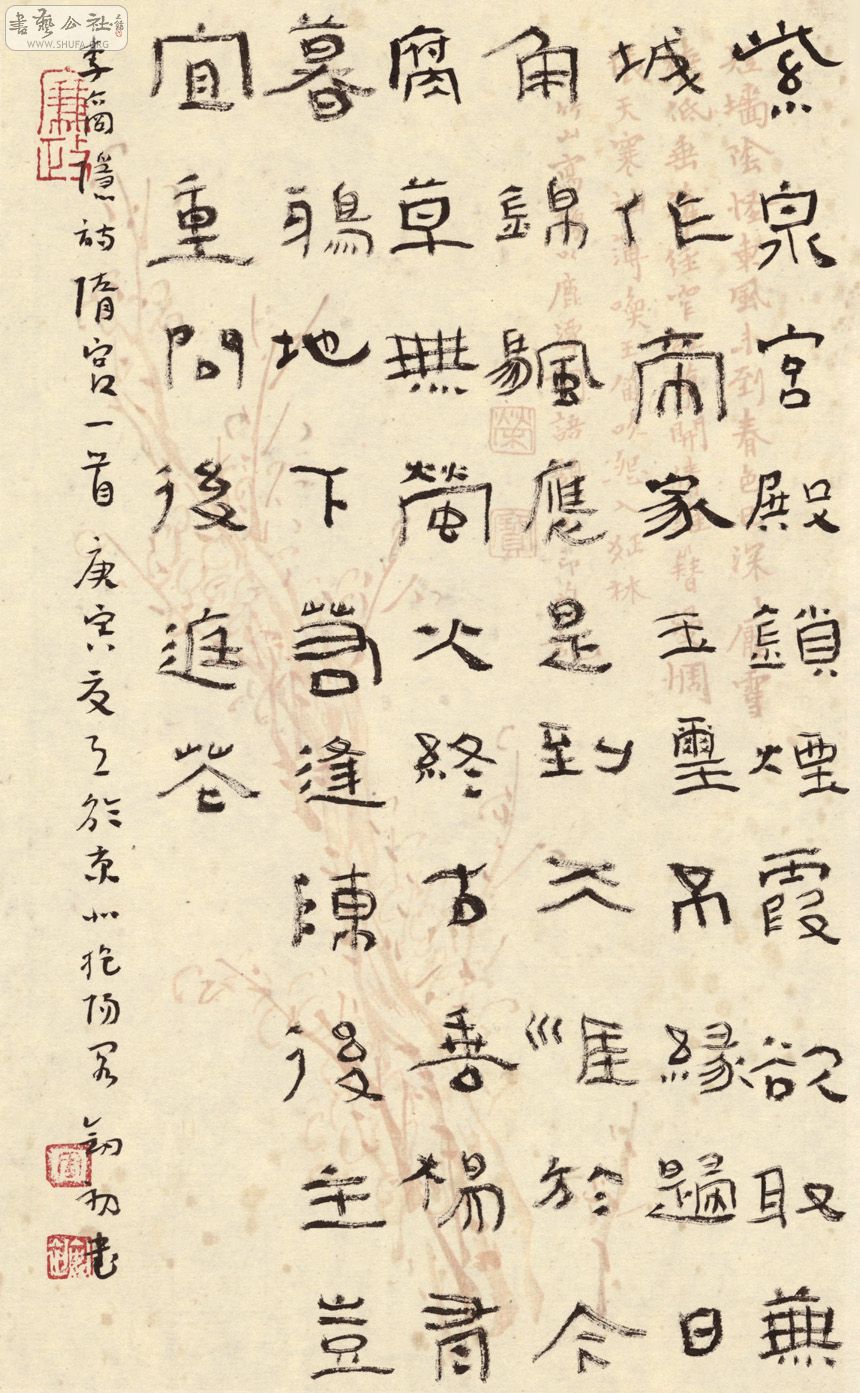 紫泉宮殿鎖煙霞欲取蕪
城作帝家玉璽不緣歸日
角錦颿應是到天涯於今
腐草無螢火終古垂楊有
暮鴉地下若逢陳後主豈
宜重問後庭花
李商隱詩隋宮一首 庚寅夏 於京北抱陽 書
書藝公社
WWW.SHUFA.ORG